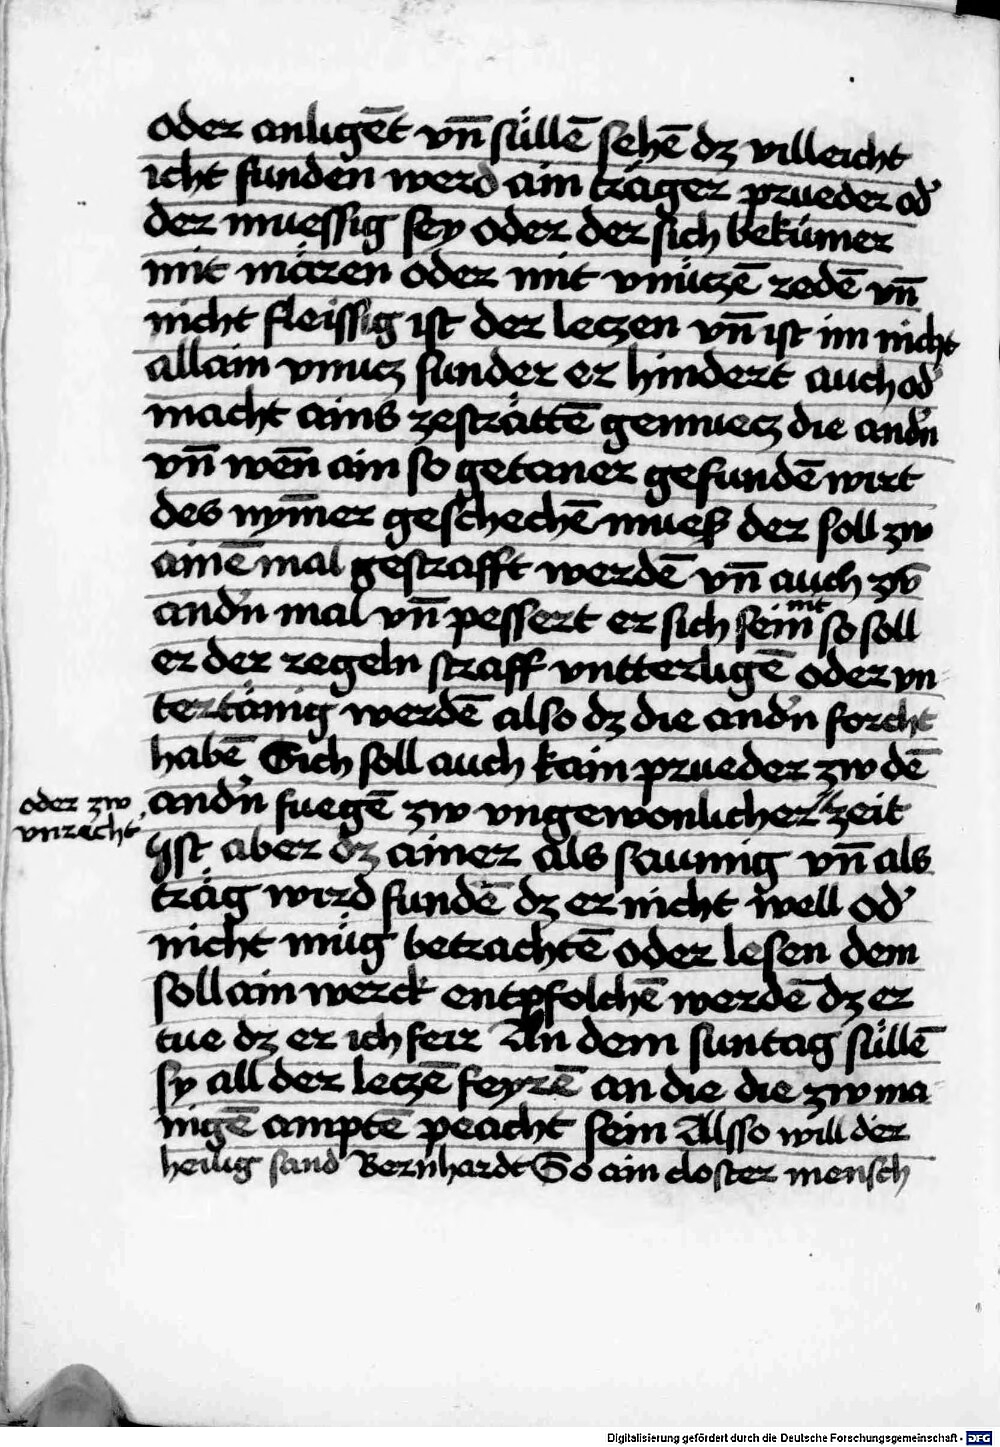 oder anligēt vn̄ süllē sehē dz villeicht
icht funden werd ain träger prueder od᾽
der muessig sey oder der sich bekümer
mit mären oder mit vnüczē redē vn̄
nicht fleissig ist der leczen vn̄ ist im nicht
allain vnucz sunder er hindert auch od᾽
macht ains zesträttē gemuecz die and᾽n
vn̄ wēn ain so getaner gefundē wirt
des nym̄er geschechē muesß der soll zw
ainē mal gestrafft werdē vn̄ auch zw̄
and᾽n mal vn̄ pessert er sich sein nit so soll
er der regeln straff vntterligē oder vn-
tertänig werdē also dz die and᾽n forcht
habē Sich soll auch kain prueder zw dē
and᾽n fuegē zw vngewonlicher // zeit
oder zw
vnrecht᾽
Ist aber dz ainer als saumig vn̄ als
träg wird fundē dz er nicht well od᾽
nicht müg betrachtē oder lesen dem
soll ain werck entpfolchē werdē dz er
tue dz er ich feir An dem suntag süllē
sy all der leczē feyrē an die die zw ma-
nigē amptē peacht sein Allso will der
heilig sand Bernhardt So ain closter mensch
Digitalisierung gefördert durch die Deutsche Forschungsgemeinschaft - DFG